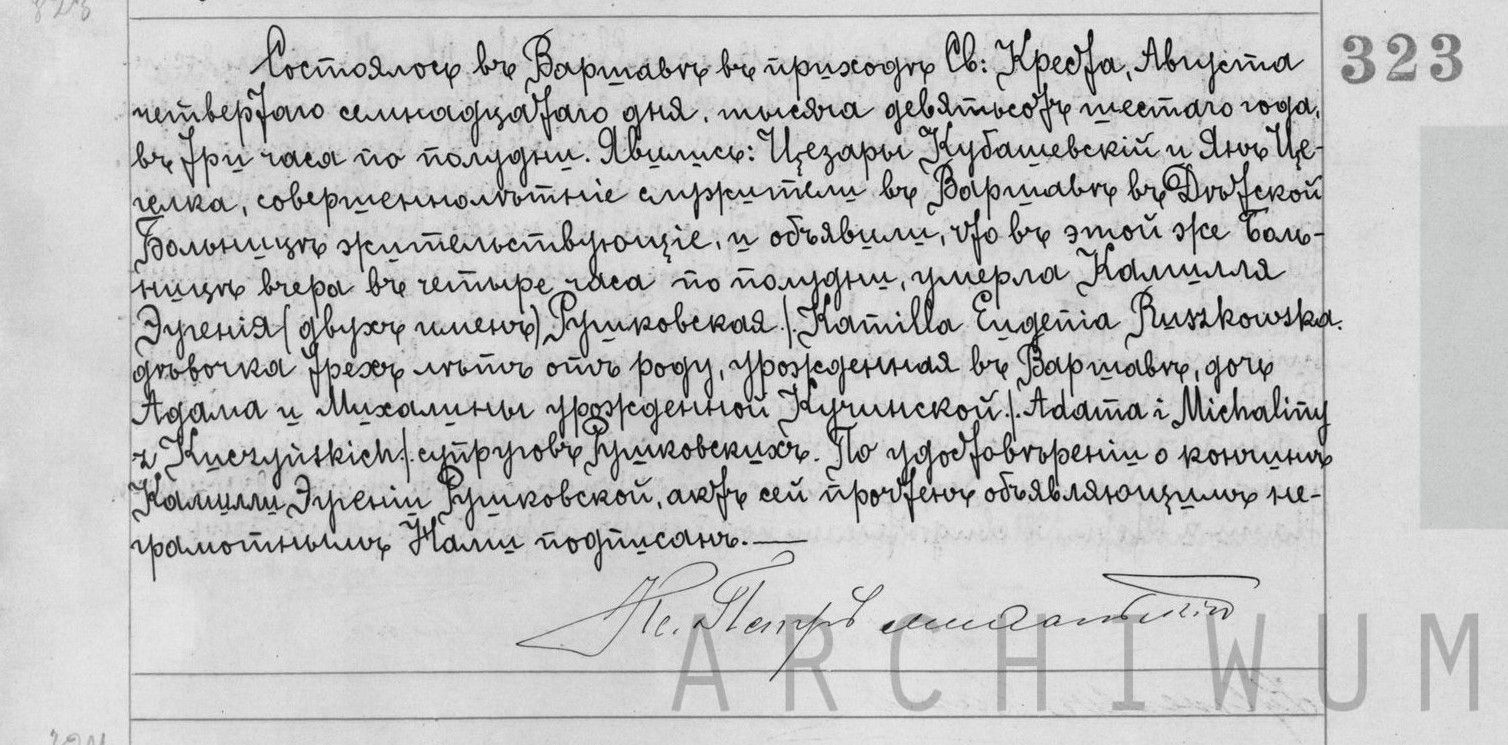 323
Состоялось въ Варшавѣ въ приходѣ Св: Креста, Августа
четвертаго семнадцатаго дня, тысяча девятьсотъ шестаго года,
въ три часа по полудни. Явились: Цезары Кубашевскій и Янъ Це-
челка, совершеннолѣтніе служители въ Варшавѣ въ Дѣтской
Больницѣ жительствующіе, и объявили, что въ этой же Боль-
ницѣ вчера въ четыре часа по полудни, умерла Камилля
Эугенія (двухъ именъ) Рушковская /. Kamilla Eugenia Ruszkowska.
дѣвочка трехъ лѣтъ отъ роду, урожденная въ Варшавѣ, дочь
Адама и Михалины урожденной Кучинской /. Adama i Michaliny
z Kuczyńskich /. супруговъ Рушковскихъ. По удостовѣреніи о кончинѣ
Камилли Эугеніи Рушковской, актъ сей прочтенъ объявляющимъ не-
грамотнымъ Нами подписанъ.—
Кс. Петръ
ARCHIWUM